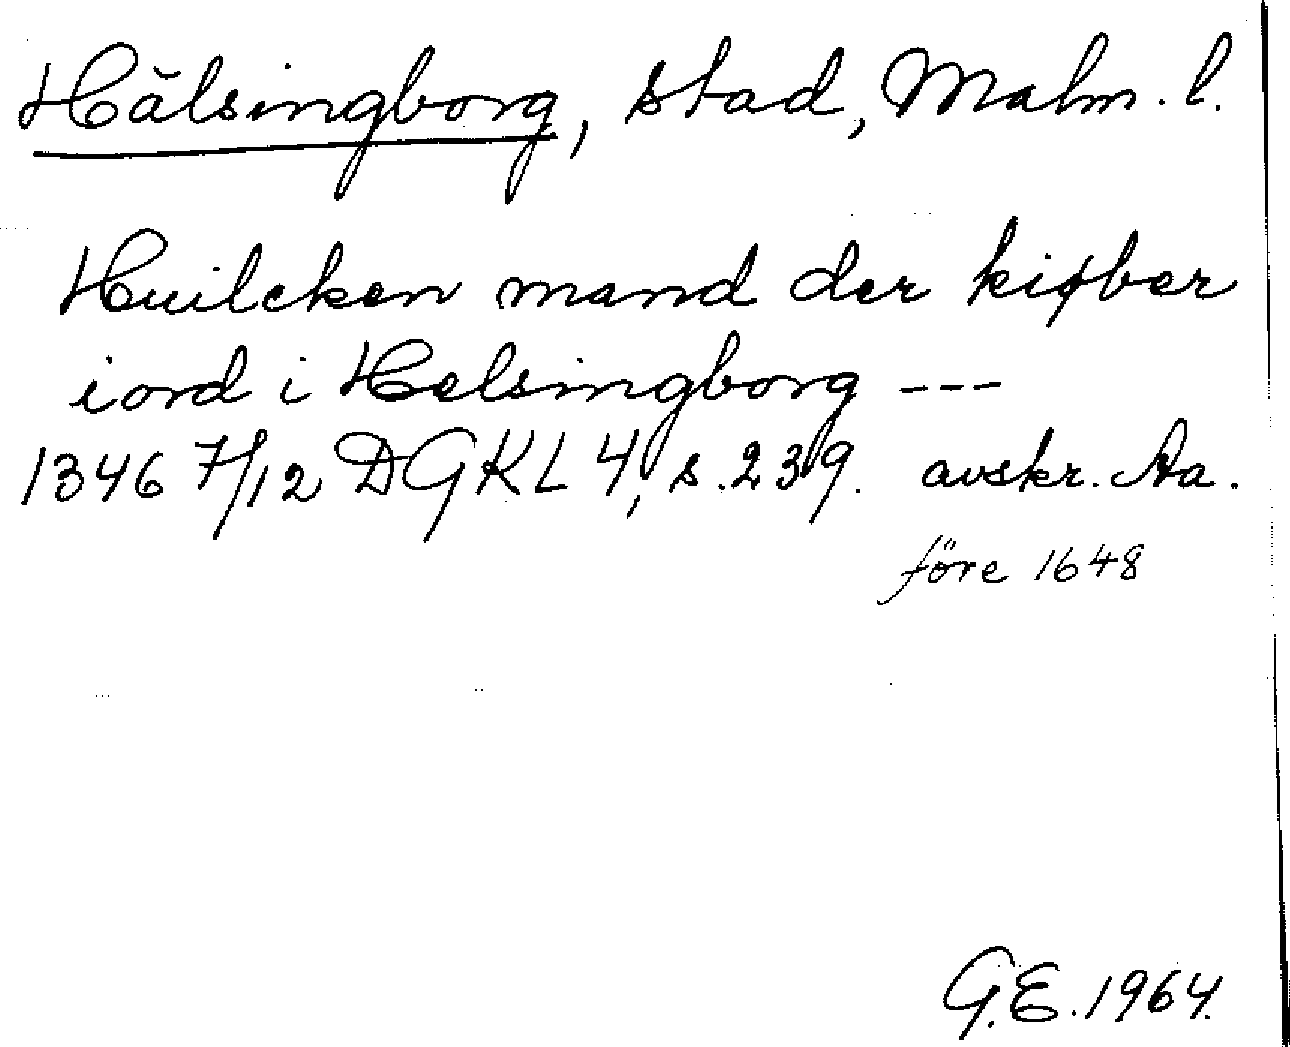 Hälsingborg, stad, Malm. l.
Huilcken mand der kiøber
iord i Helsingborg ---
1346 7/12 DGKL 4, s. 239. avskr. Aa.
före 1648
G.E. 1964.